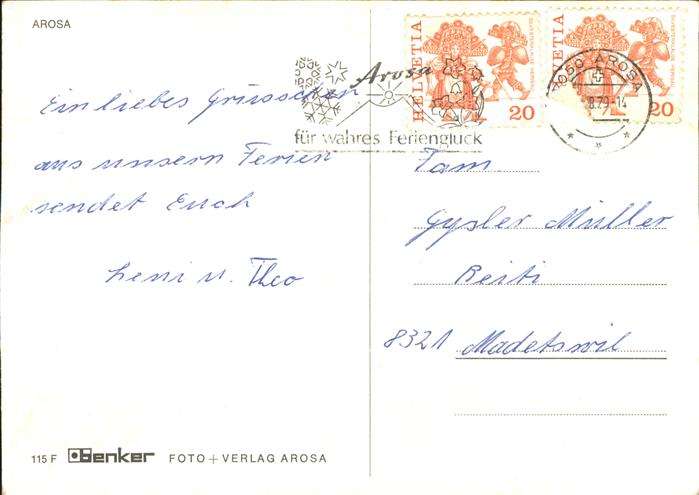 AROSA
HELVETIA
20
HELVETIA
20
Arosa
für wahres Ferienglück
7050 AROSA
8.79-14
Ein liebes Grüsschen
aus unsern Ferien
sendet Euch
Leni u. Theo
Fam
Gysler Müller
Reiti
8321 Madetswil
115 F Benker FOTO + VERLAG AROSA